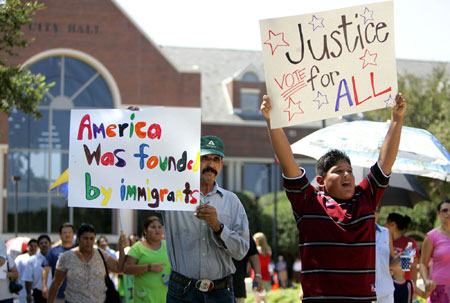 CITY HALL
America
Was founded
by immigrants
Justice
VOTE for
ALL